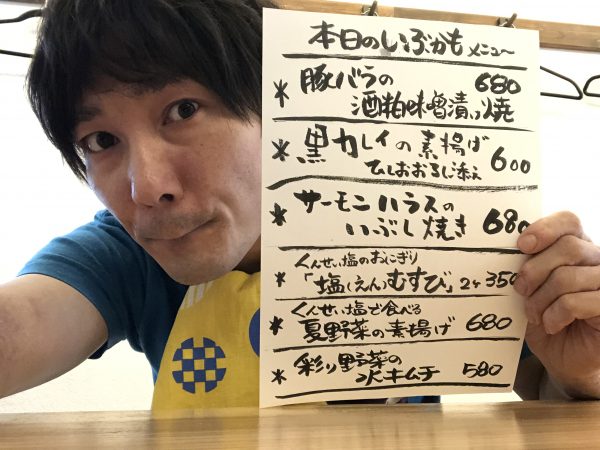 本日のいぶかもメニュー
* 豚バラの 680
酒粕味噌漬け焼
* 黒カレイの素揚げ 600
ひしおおろし添え
* サーモンハラスの
いぶし焼き 680
くんせい塩のおにぎり
* 「塩(えん)むすび」2ヶ 350
くんせい塩で食べる
* 夏野菜の素揚げ 680
* 彩り野菜の
水キムチ 580